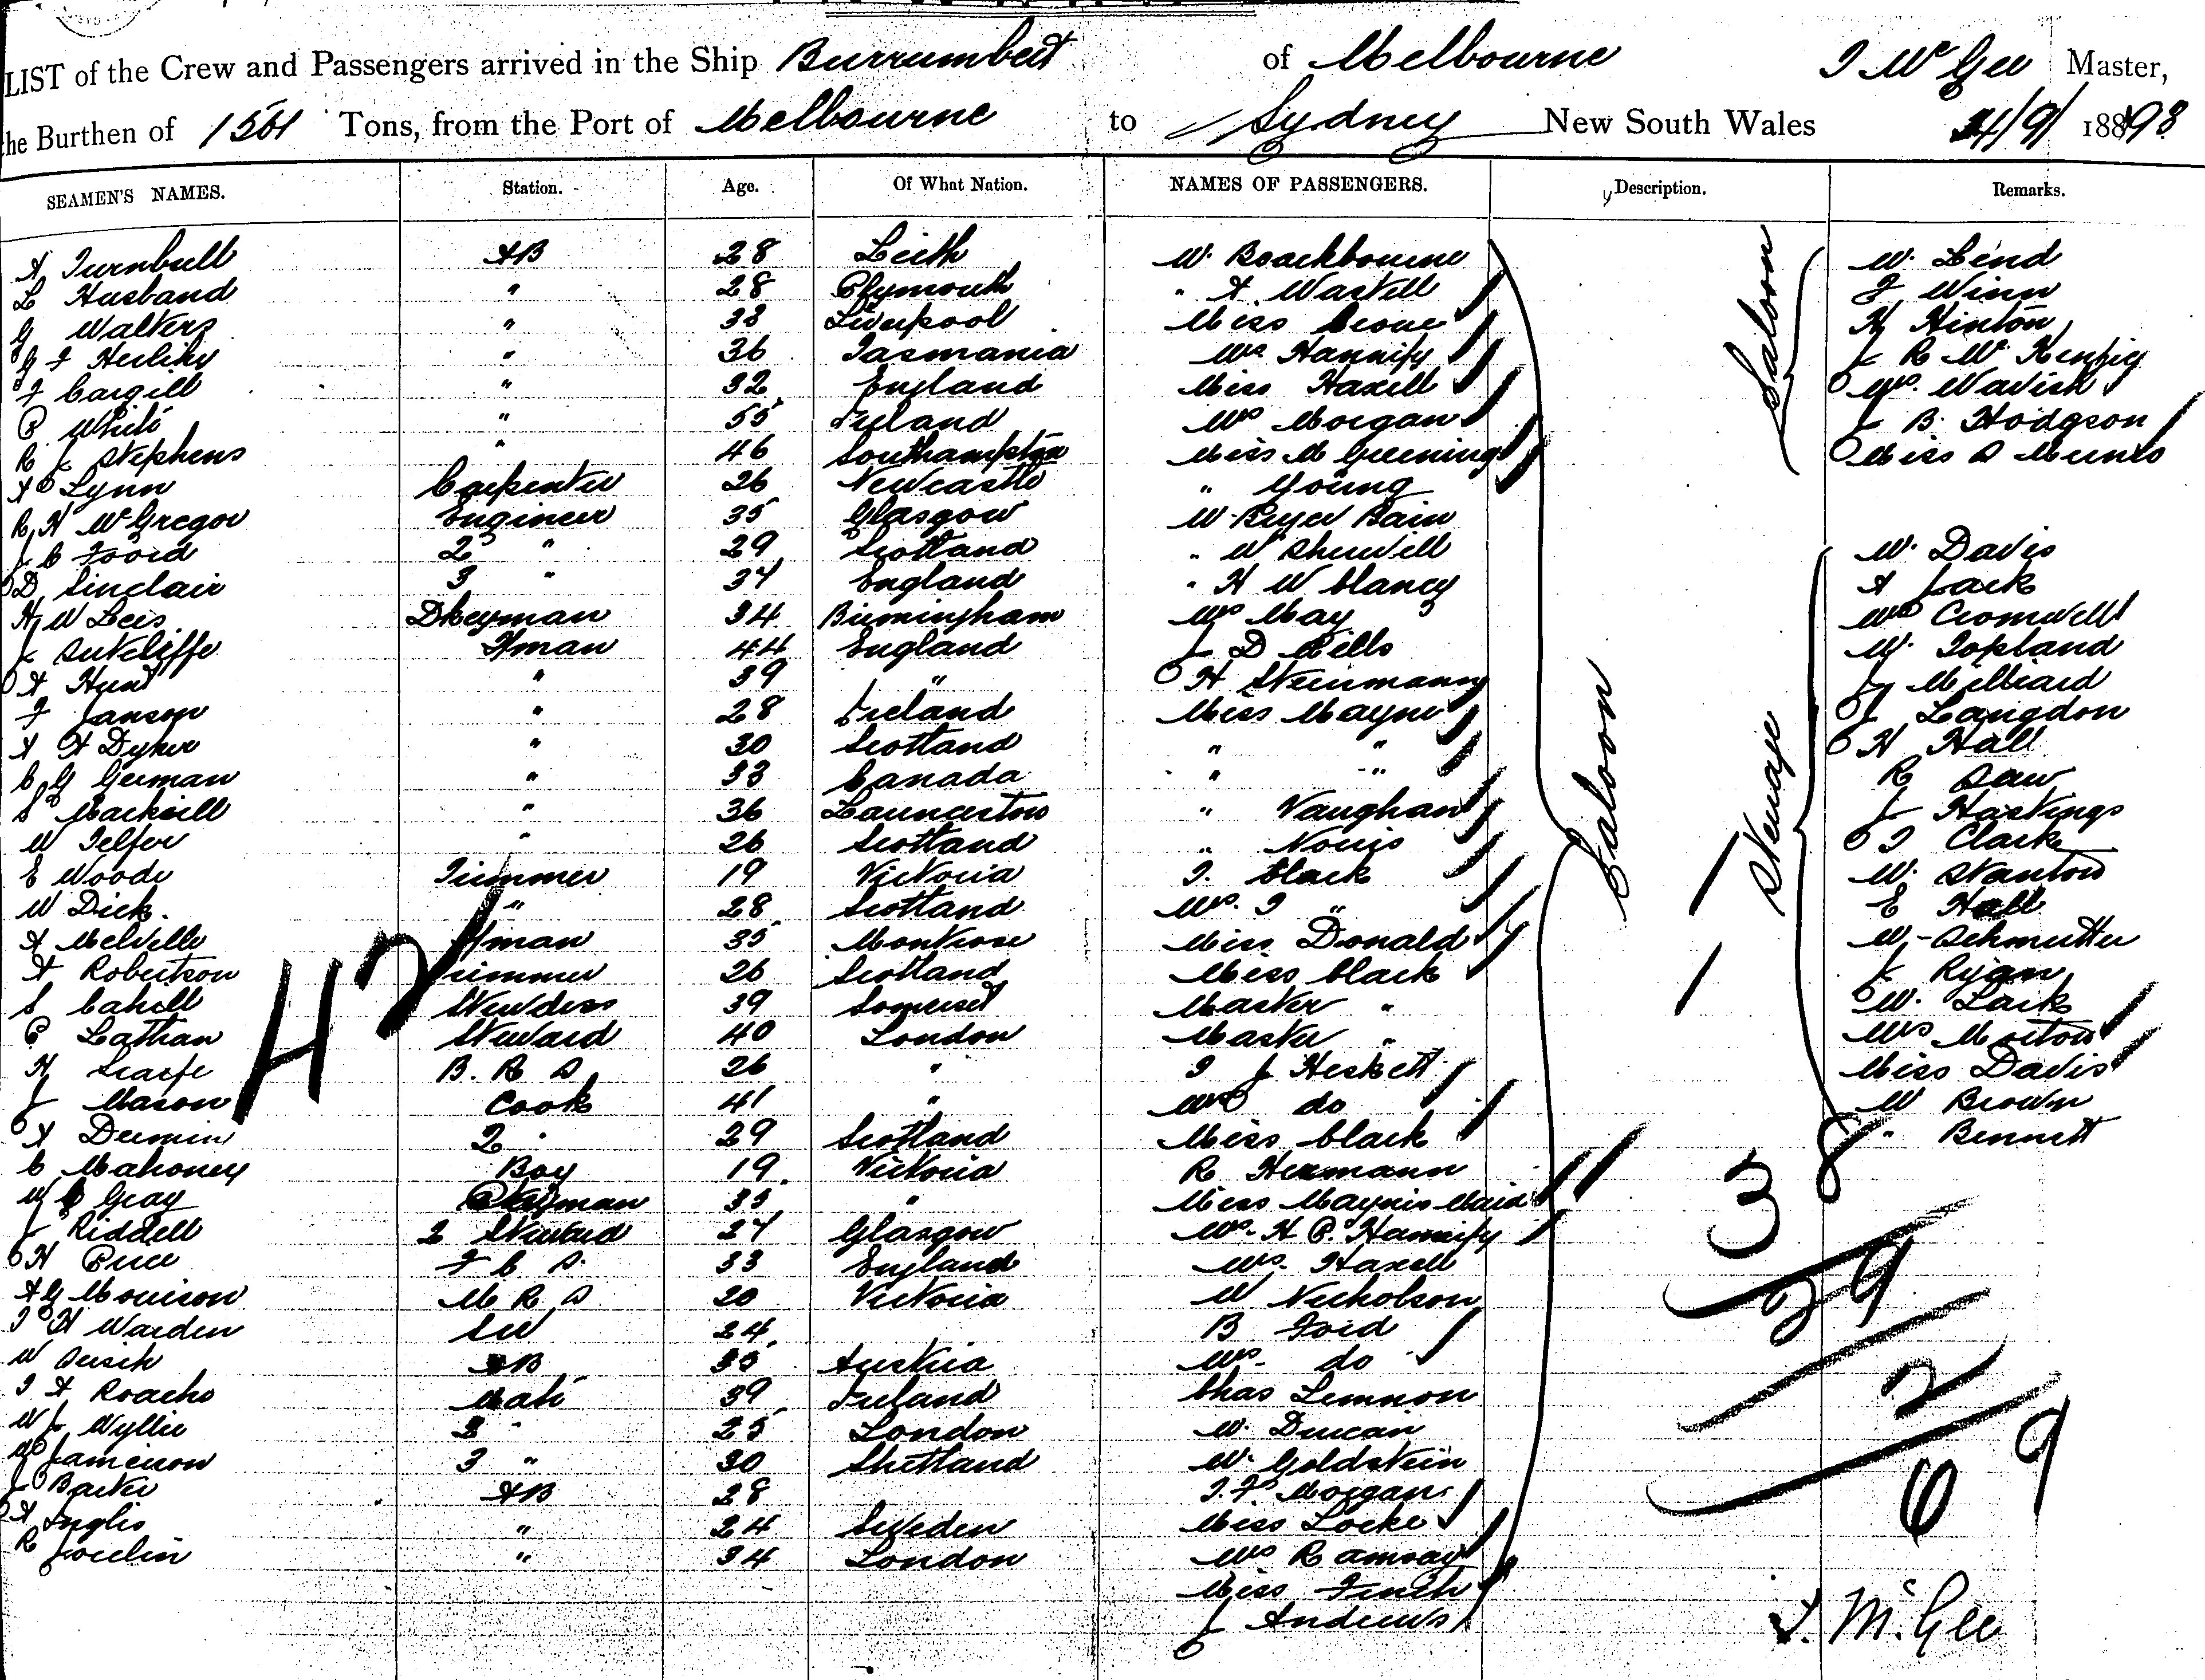 LIST of the Crew and Passengers arrived in the Ship Burrumbeet of Melbourne J McGee Master,
the Burthen of Tons, from the Port of Melbourne to Sydney New South Wales 24/9/ 1898
SEAMEN'S NAMES. Station. Age. Of What Nation. NAMES OF PASSENGERS. Description. Remarks.
A Turnbull AB 28 Leith W. Brackbourne W. Lend
L Husband " 28 Plymouth " A Wastell F Winn
G Walters " 33 Liverpool Miss H Hinton
G F Herlihy " 36 Tasmania Mrs Hannify J R
F Cargill " 32 England Miss Haxell Mrs.
P White " 55 Ireland Mrs Morgan J B. Hodgson
R J Stephens " 46 Southampton Miss M Greening Miss A Munro
A Lynn Carpenter 26 Newcastle " Young
R H McGregor Engineer 35 Glasgow W Bain
J C Foord 2 " 29 Scotland " W W. Davis
D Sinclair 3 " 37 England " H W Clancy A Jack
H W Lees Dkeyman 34 Birmingham Mrs May Mrs Cromwell
J Sutcliffe Fman 44 England J D Mills W. Copland
A Hunt " 39 " H Steinmann J Milliard
F Janson " 28 Ireland Miss Mayne J Langdon
A A Dyker " 30 Scotland " " H Hall
C G German " 33 Canada " " R Saw
S " 36 Launceston " Vaughan J Hastings
W Telfer " 26 Scotland " Norris T Clark
E Woods Trimmer 19 Victoria T. Clark W. Stanton
W Dick. " 28 Scotland Mrs. T " E Hall
A Melville Fman 35 Montrose Miss Donald W Schmutter
A Robertson Trimmer 26 Scotland Miss Clark J Ryan
S Cahill Stewdess 39 Somerset Master " W. Lark
P Lathan Steward 40 London Master " Mrs Morton
H Scarfe B. R S 26 " T J Heskett Miss Davis
J Mason Cook 41 " Mrs do W Brown
A 2 " 29 Scotland Miss Clark " Bennett
C Mahoney Boy 19 Victoria R Hermann
W C Gray 35 " Miss Maynes Maid
J Riddell 2 Steward 27 Glasgow Mrs. H P. Hannify
H Price F C S. 33 England Mrs. Haxell
A G Morrison M R S 20 Victoria W Nicholson
T H Warden 24 B Foord
W AB 35 Austria Mrs. do
T A Roache Mate 39 Ireland Chas Lemmon
W J Wyllie 2 " 25 London W. Duncan
W Jamieson 3 " 30 Shetland W. Goldstein
J Barker AB 28 T. F. Morgan
A Inglis " 24 Sweden Miss Locke
R Joculin " 34 London Mrs Ramsay
Miss Finch
J Andrews
Saloon
Saloon
Steerage
42
38
29
2
69
J. McGee